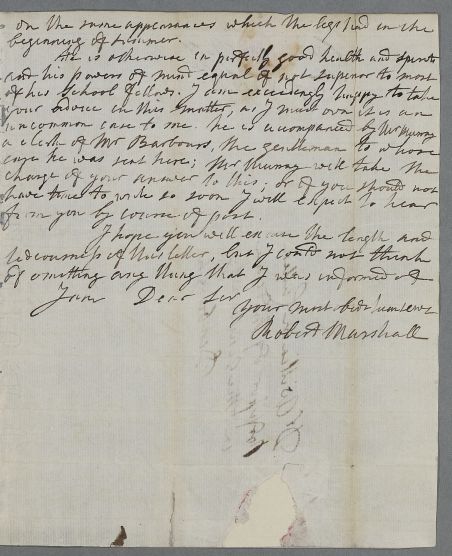 on the same appearances which the legs had in the
beginning of Summer.
He is otherwise in perfectly good health and spirits
and his powers of mind equal if not superior to most
of his School fellows. I am exceedingly happy to take
your advice in this matter, as I must own it is an
uncommon case to me. he is accompanied by Mr Murray
a clerk of Mr Barbours, the gentleman to whose
care he was sent here; Mr Murray will take the
charge of your answer to this; or if you should not
have time to write so soon I will expect to hear
from you by course of post.
I hope you will excuse the length and
tediousness of this letter, but I could not think
of omitting any thing that I was informed of
I am Dear Sir
your most Obdt humb Servt
Robert Marshall